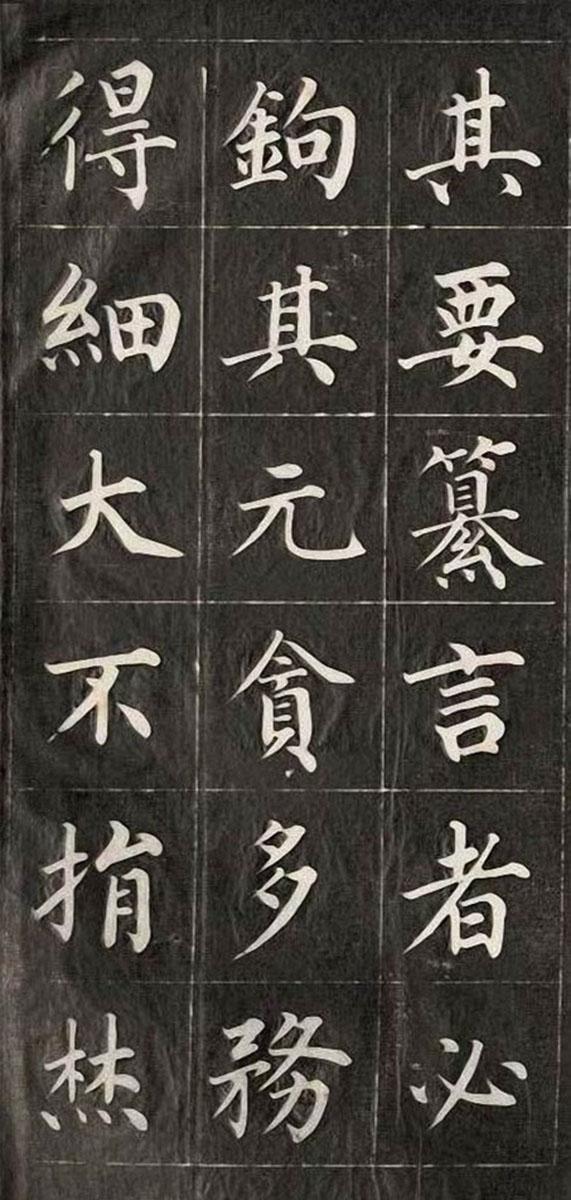 其要纂言者必
鉤其元貪多務
得細大不捐焚